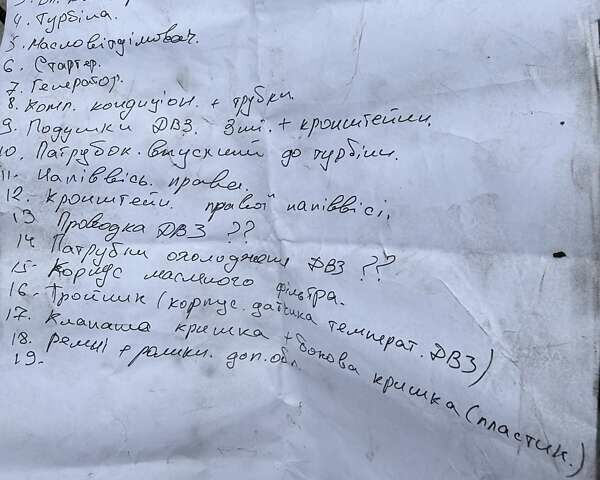 4. Турбіна.
5. Масловіддімовач.
6. Стартер.
7. Генератор.
8. Комп. кондиціон. + трубки.
9. Подушки ДВЗ. 3ші. + кронштейни.
10. Патрубок. впускний до турбіни.
11. Напіввісь. права.
12. Кронштейн правої напіввісі,
13 Проводка ДВЗ ??
14 Патрубки охолодження ДВЗ ??
15- Корпус масляного фільтра.
16. Тройник (корпус. датчика температ. ДВЗ)
17. Клапана кришка + бокова кришка (пластик.)
18. Ремні + ролики. доп. обл.
19.